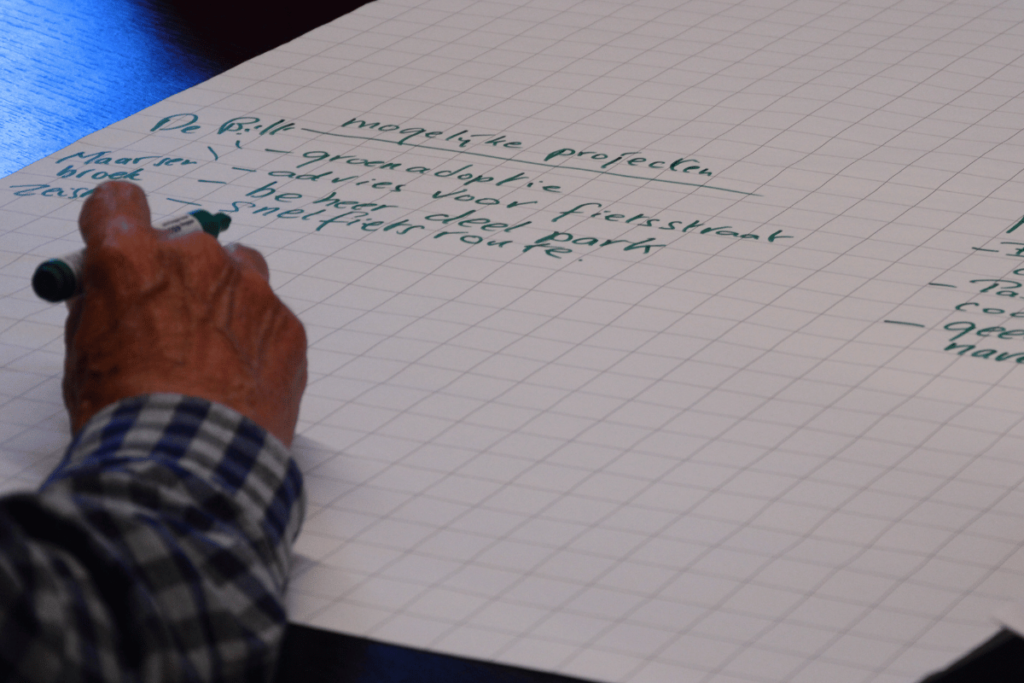 De Bilt — mogelijke projecten
Maarssen
broek
Zeist
- groenadoptie
- advies voor fietsstraat
- beheer deel park
- snelfietsroute.
-
-
- gee